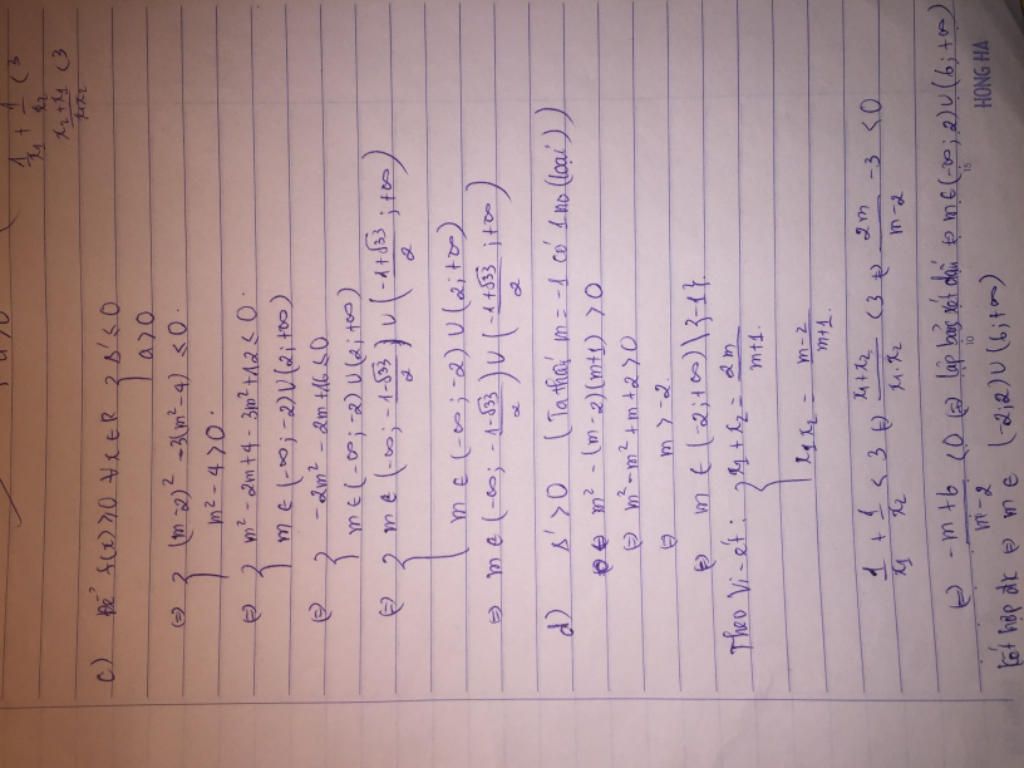 1/x₁ + 1/x₂ < 3
(x₂ + x₁)/(x₁x₂) < 3
c) Để f(x) ≥ 0 ∀x ∈ R { Δ' ≤ 0
a > 0
⇔ { (m-2)² - 3(m² - 4) ≤ 0.
m² - 4 > 0.
⇔ { m² - 2m + 4 - 3m² + 12 ≤ 0.
m ∈ (-∞; -2) ∪ (2; +∞)
⇔ { -2m² - 2m + 16 ≤ 0
m ∈ (-∞; -2) ∪ (2; +∞)
⇔ { m ∈ (-∞; (-1-√33)/2) ∪ ((-1+√33)/2; +∞)
m ∈ (-∞; -2) ∪ (2; +∞)
⇔ m ∈ (-∞; (-1-√33)/2) ∪ ((-1+√33)/2; +∞)
d) Δ' > 0 (Ta thấy m = -1 có 1 no (loại))
⇔ m² - (m-2)(m+1) > 0
⇔ m² - m² + m + 2 > 0
⇔ m > -2.
⇔ m ∈ (-2; +∞) \ {-1}.
Theo Vi-ét: { x₁ + x₂ = 2m/(m+1).
x₁x₂ = (m-2)/(m+1).
1/x₁ + 1/x₂ < 3 ⇔ (x₁+x₂)/(x₁.x₂) < 3 ⇔ 2m/(m-2) - 3 < 0
⇔ (-m+6)/(m-2) < 0 ⇔ lập bảng xét dấu ⇔ m ∈ (-∞; 2) ∪ (6; +∞)
Kết hợp đk ⇔ m ∈ (-2; 2) ∪ (6; +∞)
HONG HA